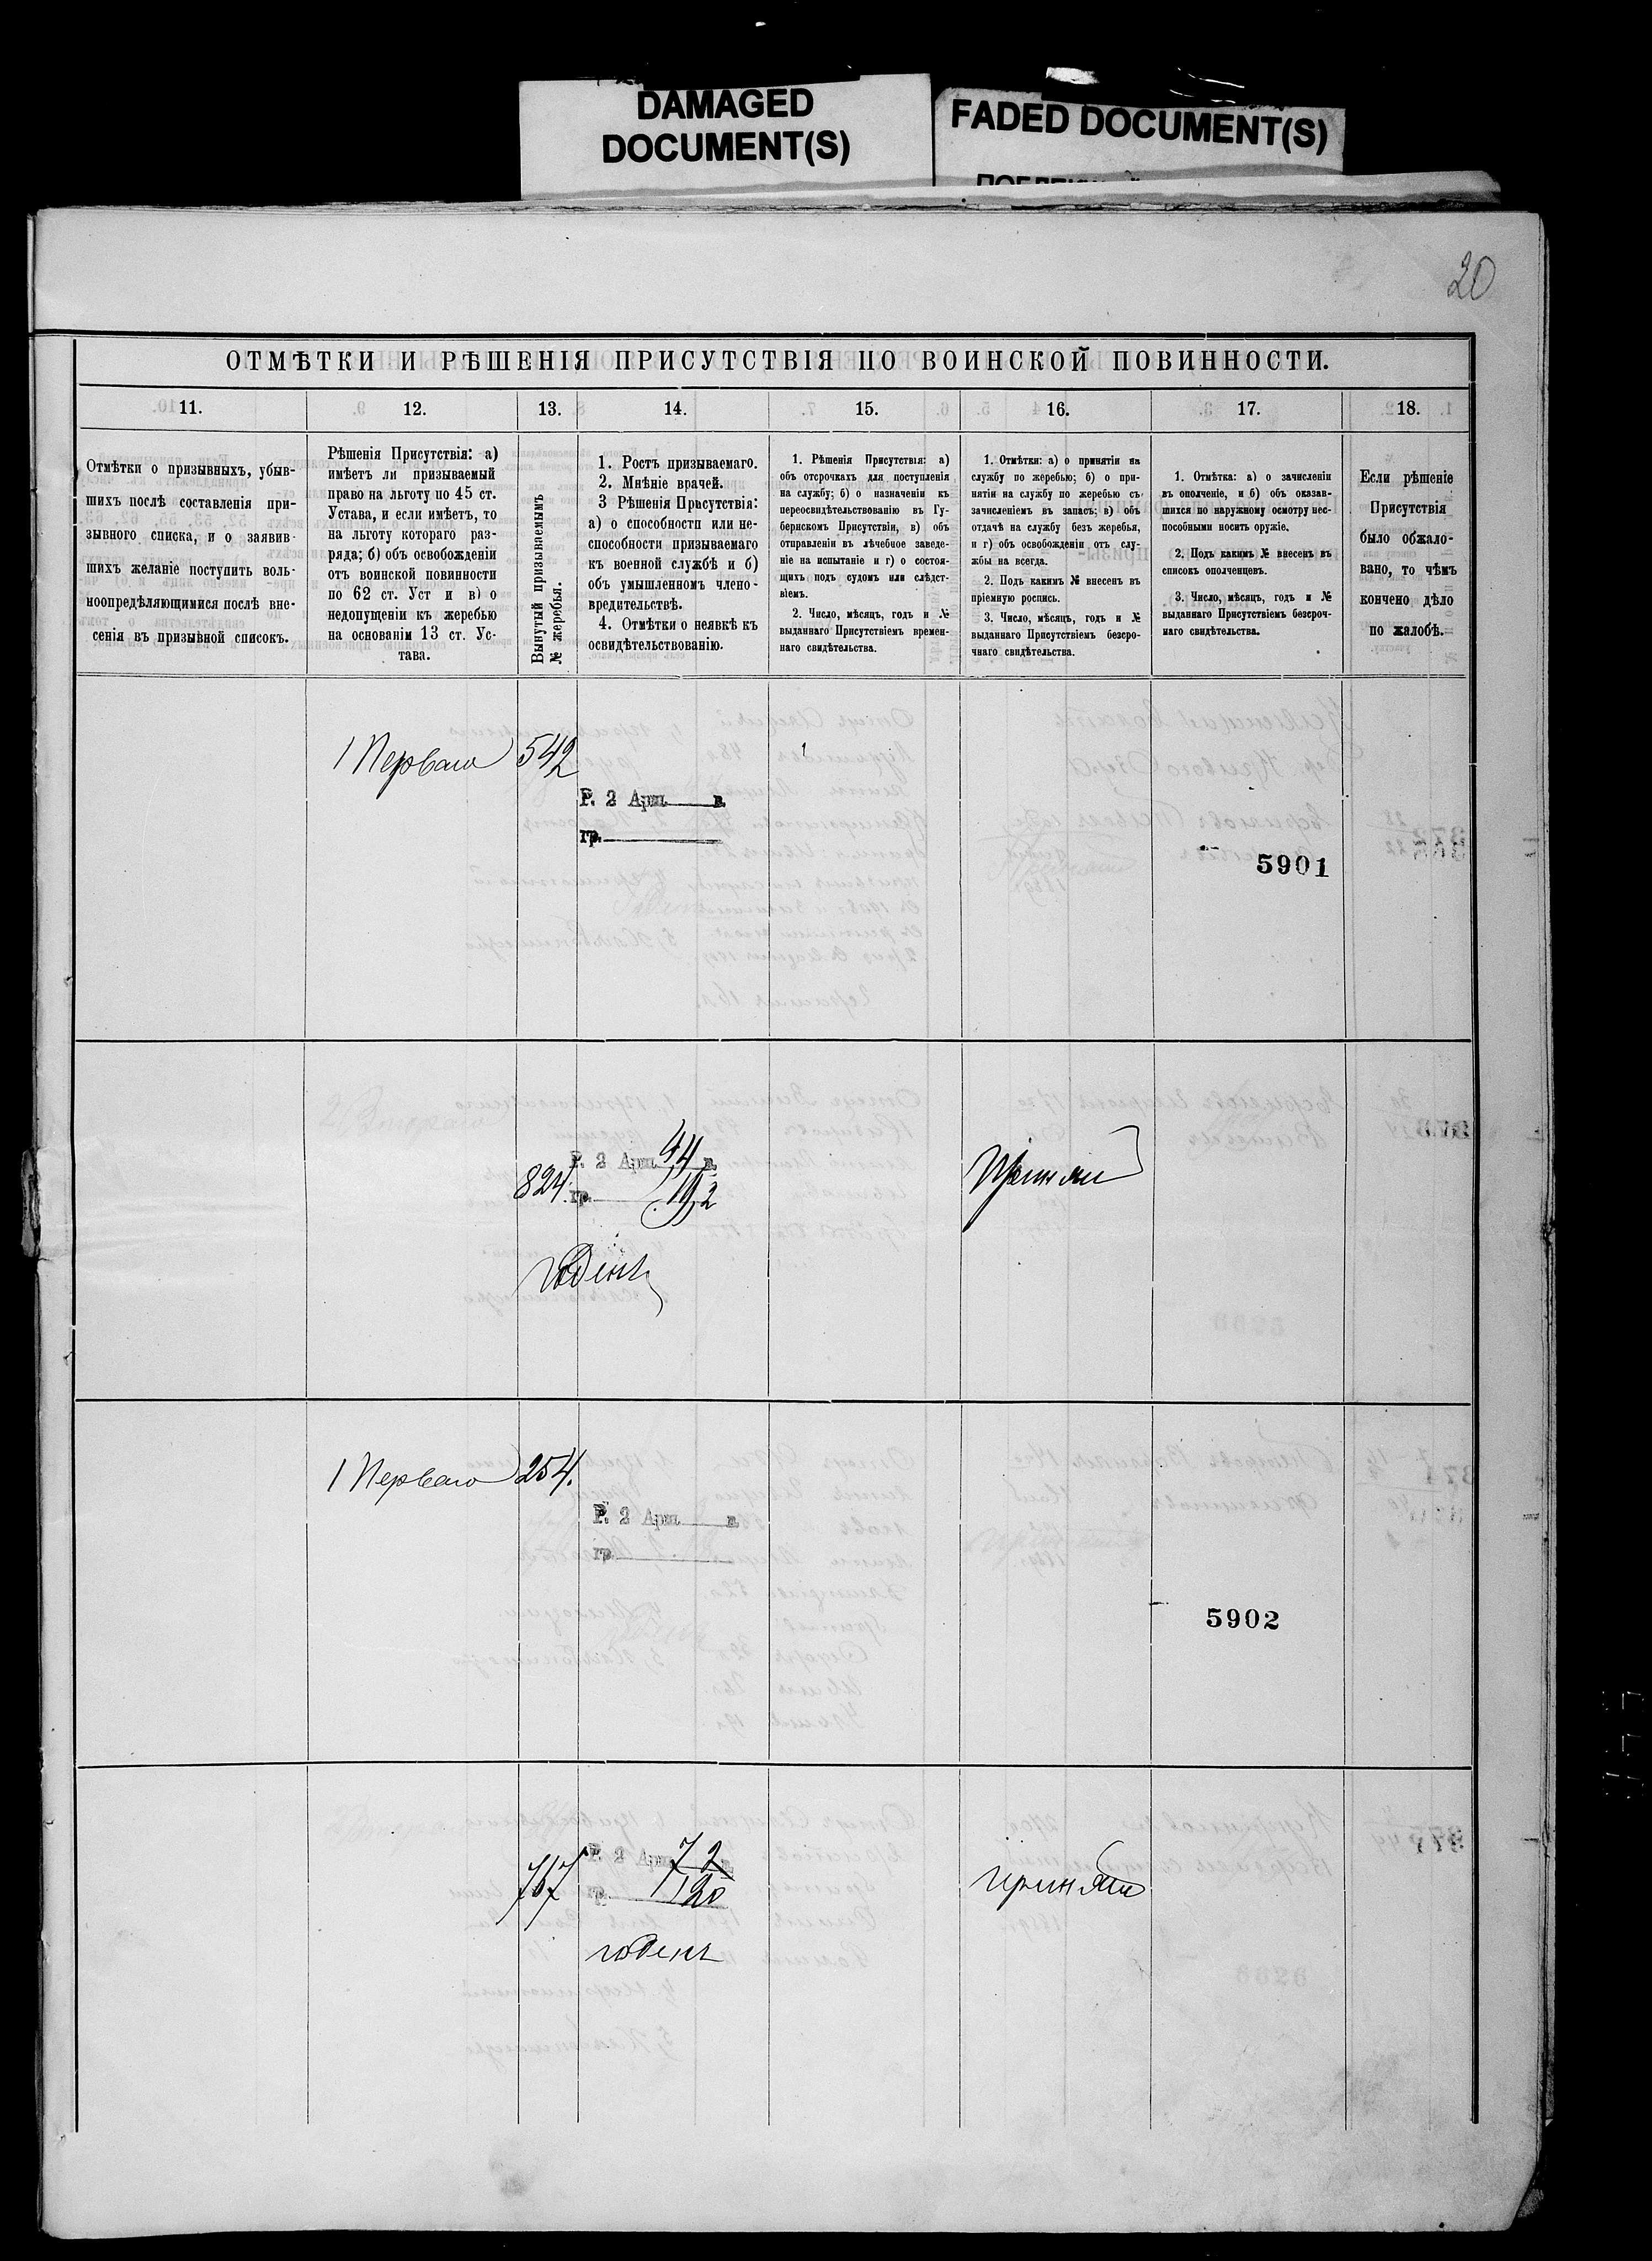 DAMAGED
DOCUMENT(S)
FADED DOCUMENT(S)
20
ОТМѢТКИ И РѢШЕНІЯ ПРИСУТСТВІЯ ПО ВОИНСКОЙ ПОВИННОСТИ.
11.
12.
13.
14.
15.
16.
17.
18.
Отмѣтки о призывныхъ, убыв-
шихъ послѣ составленія при-
зывного списка, и о заявив-
шихъ желаніе поступить воль-
ноопредѣляющимися послѣ вне-
сенія въ призывной списокъ.
Рѣшенія Присутствія: а)
имѣетъ ли призываемый
право на льготу по 45 ст.
Устава, и если имѣетъ, то
на льготу котораго раз-
ряда; б) объ освобожденіи
отъ воинской повинности
по 62 ст. Уст и в) о
недопущеніи къ жеребью
на основаніи 13 ст. Ус-
тава.
Вынутый призываемымъ
№ жеребья.
1. Ростъ призываемаго.
2. Мнѣніе врачей.
3 Рѣшенія Присутствія:
а) о способности или не-
способности призываемаго
къ военной службѣ и б)
объ умышленномъ члено-
вредительствѣ.
4. Отмѣтки о неявкѣ къ
освидѣтельствованію.
1. Рѣшенія Присутствія: а)
объ отсрочкахъ для поступленія
на службу; б) о назначеніи къ
переосвидѣтельствованію въ Гу-
бернскомъ Присутствіи, в) объ
отправленіи въ лѣчебное заведе-
ніе на испытаніе и г) о состоя-
щихъ подъ судомъ или слѣдст-
віемъ.
2. Число, мѣсяцъ, годъ и №
выданнаго Присутствіемъ времен-
наго свидѣтельства.
1. Отмѣтки: а) о принятіи на
службу по жеребью; б) о при-
нятіи на службу по жеребью съ
зачисленіемъ въ запасъ; в) объ
отдачѣ на службу безъ жеребья,
и г) объ освобожденіи отъ слу-
жбы на всегда.
2. Подъ какимъ № внесенъ въ
пріемную роспись.
3. Число, мѣсяцъ, годъ и №
выданнаго Присутствіемъ безсро-
чнаго свидѣтельства.
1. Отмѣтка: а) о зачисленіи
въ ополченіе, и б) объ оказав-
шихся по наружному осмотру нес-
пособными носить оружіе.
2. Подъ какимъ № внесенъ въ
списокъ ополченцевъ.
3. Число, мѣсяцъ, годъ и №
выданнаго Присутствіемъ безсроч-
наго свидѣтельства.
Если рѣшеніе
Присутствія
было обжало-
вано, то чѣмъ
кончено дѣло
по жалобѣ.
1 Перваго
542
Р. 2 Арш. в.
гр.
5901
824.
Р. 2 Арш. 44 в.
гр. 19 2
Годенъ
Принятъ
1 Перваго
254.
Р. 2 Арш. в.
гр.
5902
767
Р. 2 Арш. 7 2 в.
гр. 1 20
годенъ
принятъ